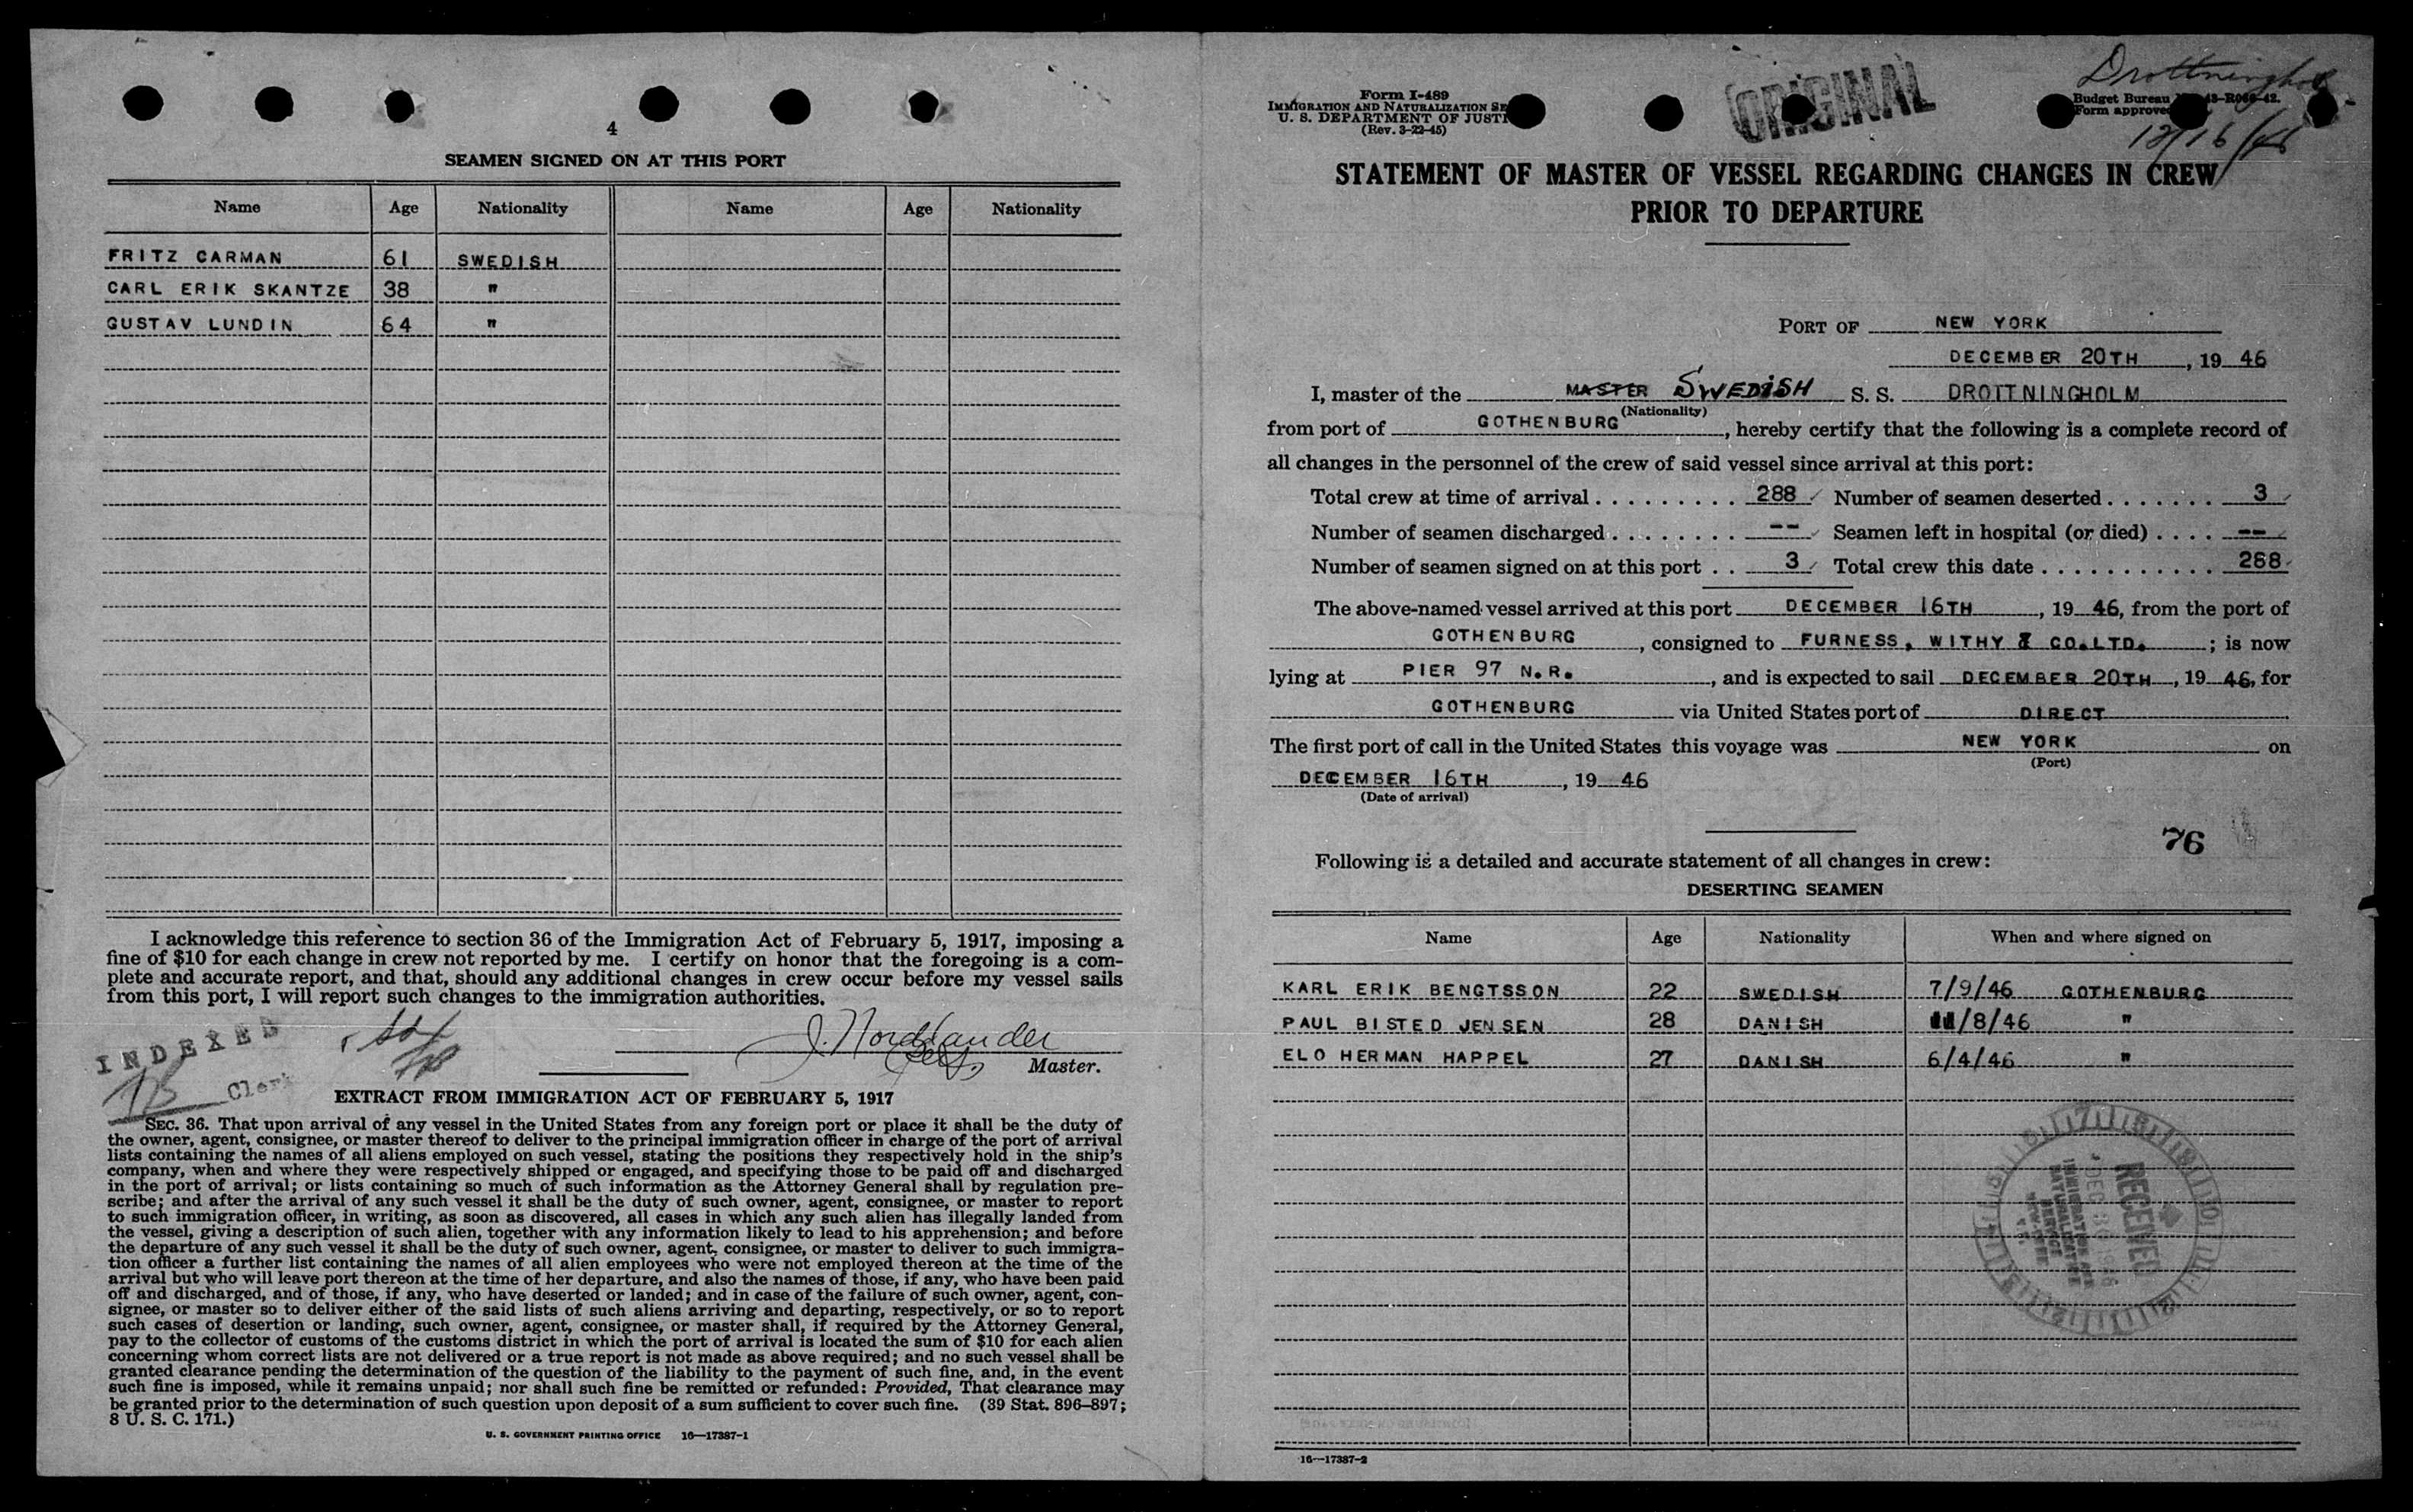 4
SEAMEN SIGNED ON AT THIS PORT
Name Age Nationality Name Age Nationality
FRITZ CARMAN 61 SWEDISH
CARL ERIK SKANTZE 38 "
GUSTAV LUNDIN 64 "
I acknowledge this reference to section 36 of the Immigration Act of February 5, 1917, imposing a
fine of $10 for each change in crew not reported by me. I certify on honor that the foregoing is a com-
plete and accurate report, and that, should any additional changes in crew occur before my vessel sails
from this port, I will report such changes to the immigration authorities.
INDEXED
J. Nordlander
Master.
Clerk
EXTRACT FROM IMMIGRATION ACT OF FEBRUARY 5, 1917
SEC. 36. That upon arrival of any vessel in the United States from any foreign port or place it shall be the duty of
the owner, agent, consignee, or master thereof to deliver to the principal immigration officer in charge of the port of arrival
lists containing the names of all aliens employed on such vessel, stating the positions they respectively hold in the ship's
company, when and where they were respectively shipped or engaged, and specifying those to be paid off and discharged
in the port of arrival; or lists containing so much of such information as the Attorney General shall by regulation pre-
scribe; and after the arrival of any such vessel it shall be the duty of such owner, agent, consignee, or master to report
to such immigration officer, in writing, as soon as discovered, all cases in which any such alien has illegally landed from
the vessel, giving a description of such alien, together with any information likely to lead to his apprehension; and before
the departure of any such vessel it shall be the duty of such owner, agent, consignee, or master to deliver to such immigra-
tion officer a further list containing the names of all alien employees who were not employed thereon at the time of the
arrival but who will leave port thereon at the time of her departure, and also the names of those, if any, who have been paid
off and discharged, and of those, if any, who have deserted or landed; and in case of the failure of such owner, agent, con-
signee, or master so to deliver either of the said lists of such aliens arriving and departing, respectively, or so to report
such cases of desertion or landing, such owner, agent, consignee, or master shall, if required by the Attorney General,
pay to the collector of customs of the customs district in which the port of arrival is located the sum of $10 for each alien
concerning whom correct lists are not delivered or a true report is not made as above required; and no such vessel shall be
granted clearance pending the determination of the question of the liability to the payment of such fine, and, in the event
such fine is imposed, while it remains unpaid; nor shall such fine be remitted or refunded: Provided, That clearance may
be granted prior to the determination of such question upon deposit of a sum sufficient to cover such fine. (39 Stat. 896–897;
8 U. S. C. 171.)
U. S. GOVERNMENT PRINTING OFFICE 16—17387-1
Form I-489
IMMIGRATION AND NATURALIZATION SE
U. S. DEPARTMENT OF JUSTI
(Rev. 3-22-45)
ORIGINAL
Drottningholm
Budget Bureau
Form approved
12/16/46
STATEMENT OF MASTER OF VESSEL REGARDING CHANGES IN CREW
PRIOR TO DEPARTURE
PORT OF NEW YORK
DECEMBER 20TH, 19 46
I, master of the MASTER SWEDISH S. S. DROTTNINGHOLM
(Nationality)
from port of GOTHENBURG, hereby certify that the following is a complete record of
all changes in the personnel of the crew of said vessel since arrival at this port:
Total crew at time of arrival . . . . . . . . . 288 Number of seamen deserted . . . . . . . 3
Number of seamen discharged . . . . . . . . -- Seamen left in hospital (or died) . . . . --
Number of seamen signed on at this port . . 3 Total crew this date . . . . . . . . . . . 288
The above-named vessel arrived at this port DECEMBER 16TH, 19 46, from the port of
GOTHENBURG, consigned to FURNESS, WITHY & CO.LTD. ; is now
lying at PIER 97 N.R., and is expected to sail DECEMBER 20TH, 19 46, for
GOTHENBURG via United States port of DIRECT
The first port of call in the United States this voyage was NEW YORK on
(Port)
DECEMBER 16TH, 19 46
(Date of arrival)
76
Following is a detailed and accurate statement of all changes in crew:
DESERTING SEAMEN
Name Age Nationality When and where signed on
KARL ERIK BENGTSSON 22 SWEDISH 7/9/46 GOTHENBURG
PAUL BISTED JENSEN 28 DANISH 11/8/46 "
ELO HERMAN HAPPEL 27 DANISH 6/4/46 "
RECEIVED
DEC 1946
IMMIGRATION AND
NATURALIZATION
SERVICE
NEW YORK
N.Y.
16—17387-2